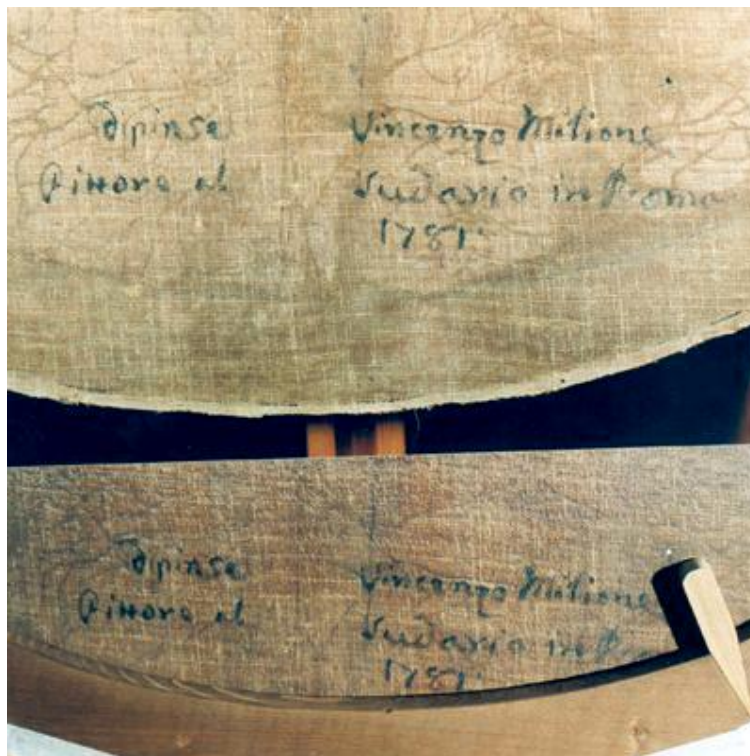 dipinse Vincenzo Milione
Pittore al Sudario in Roma
1781.
dipinse Vincenzo Milione
Pittore al Sudario in
1781.